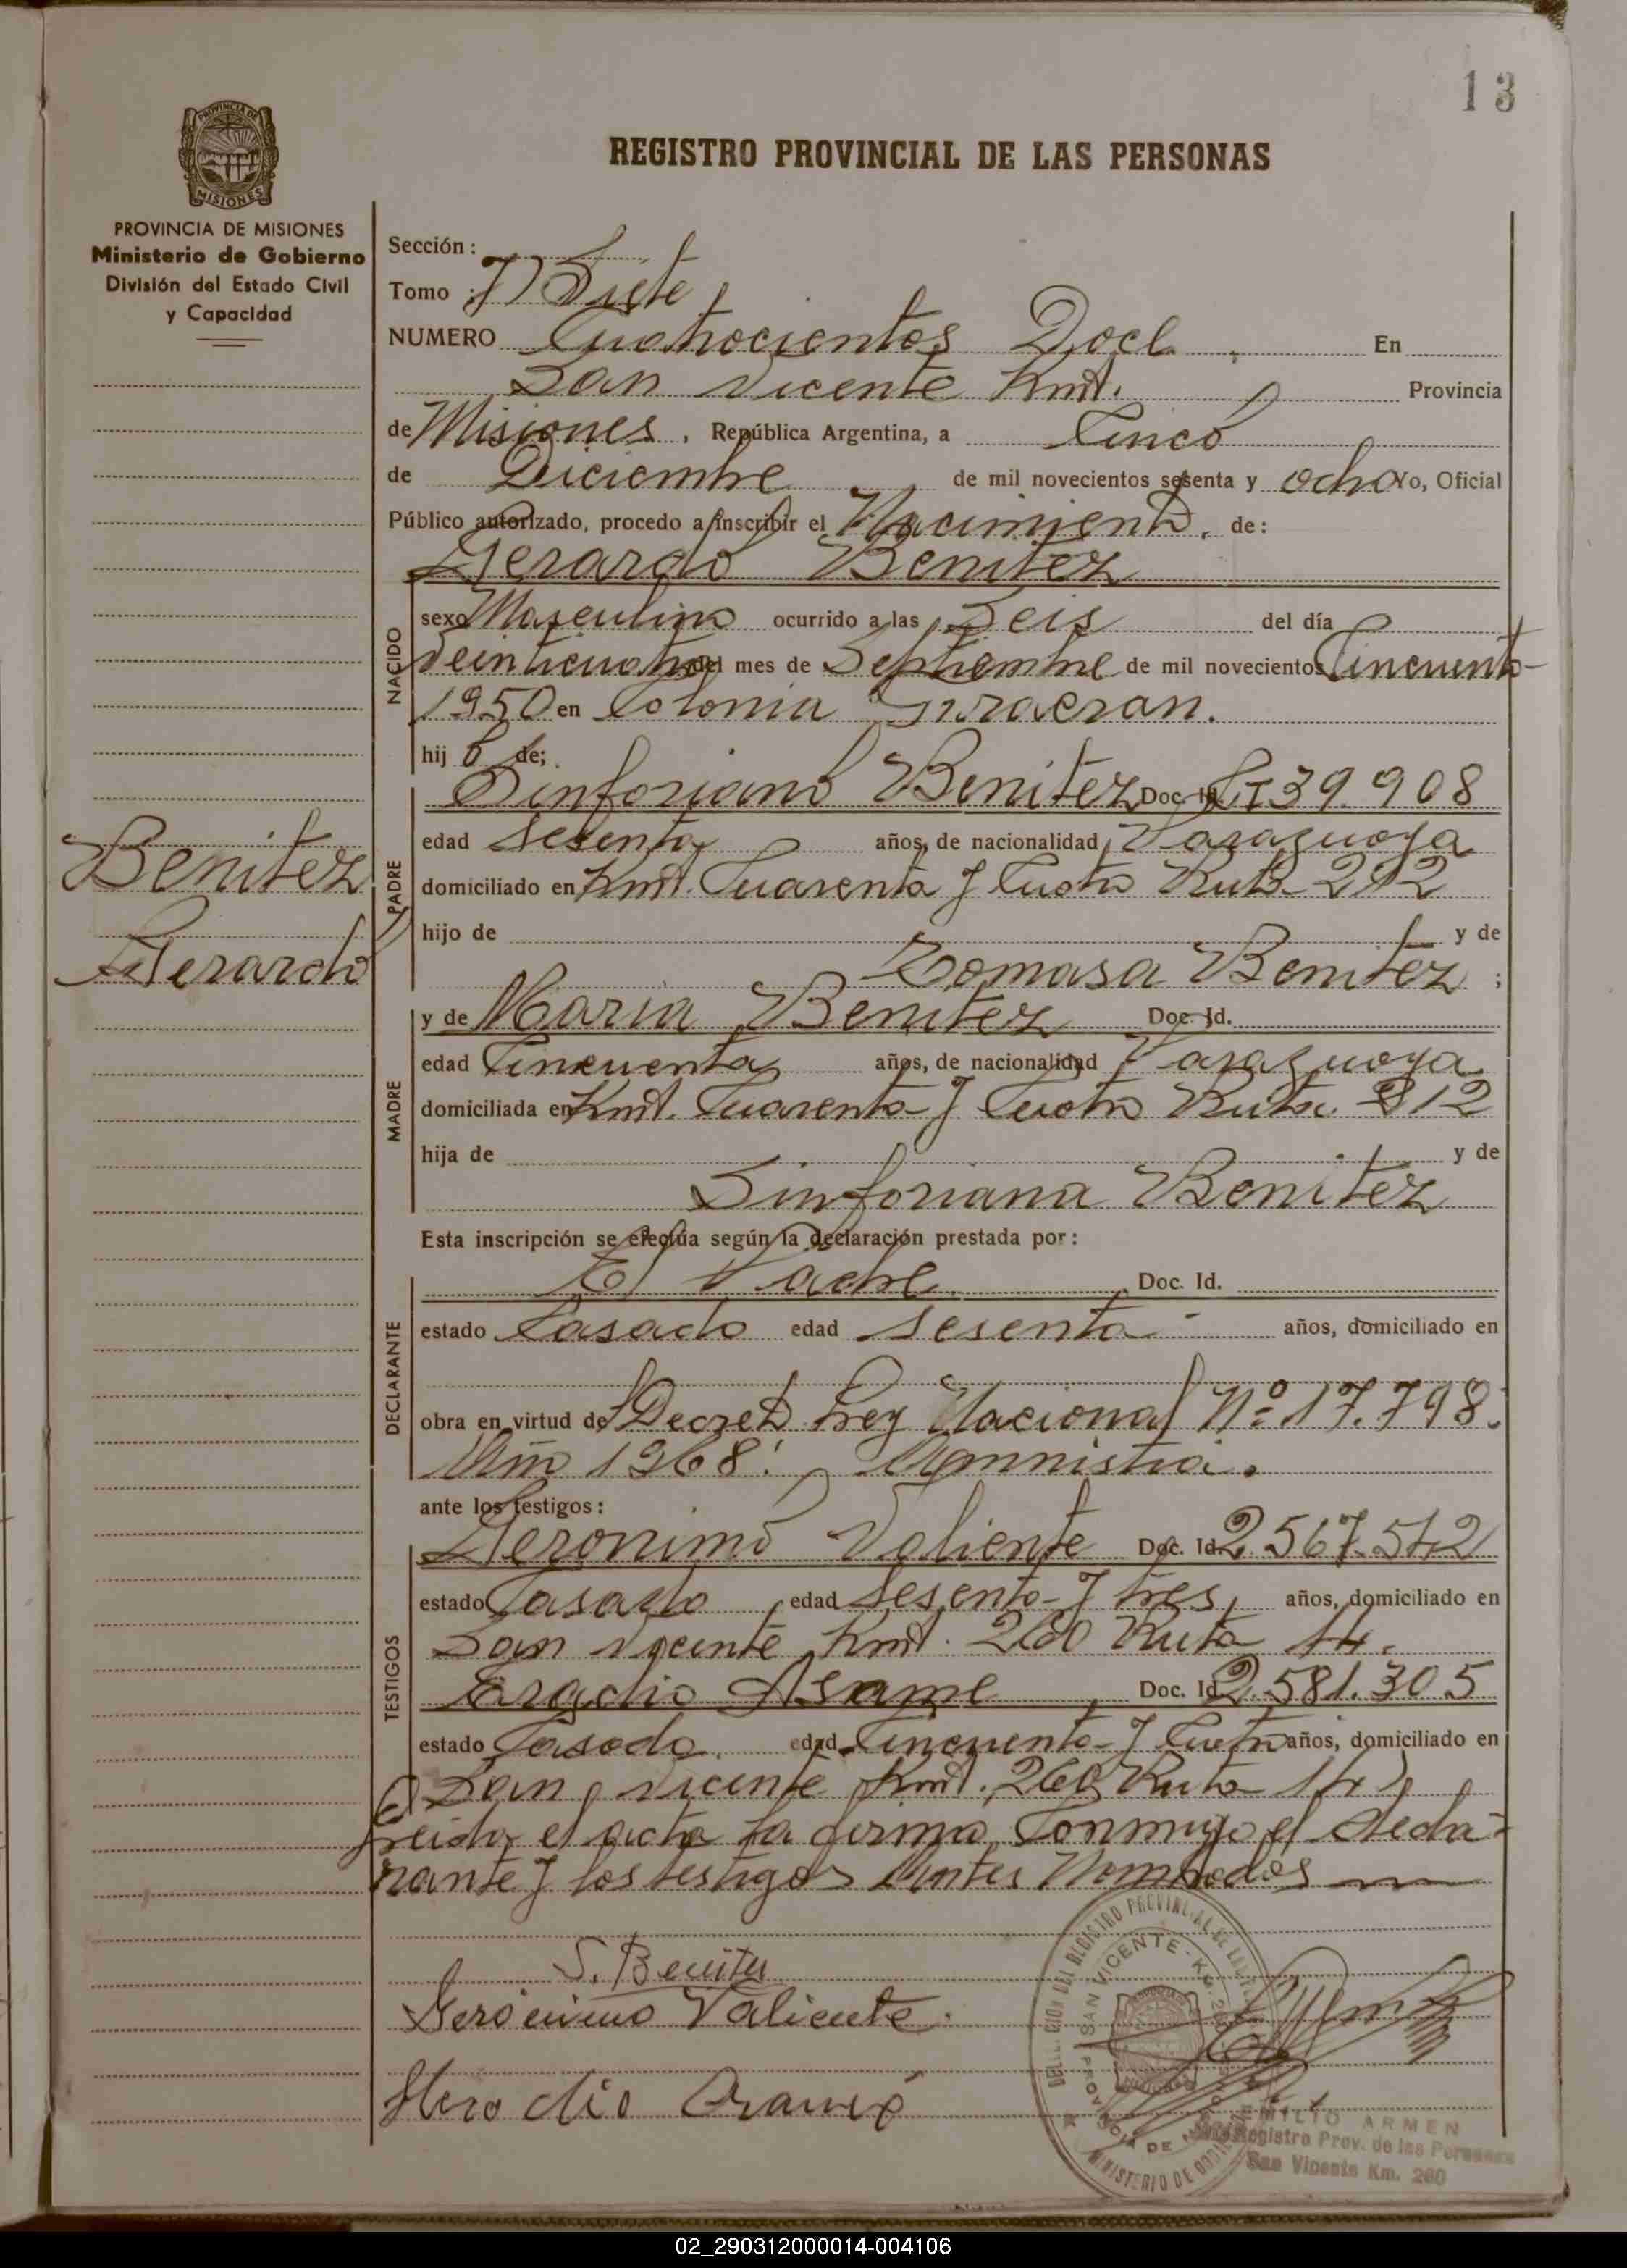 13
REGISTRO PROVINCIAL DE LAS PERSONAS
PROVINCIA DE
MISIONES
PROVINCIA DE MISIONES
Ministerio de Gobierno
División del Estado Civil
y Capacidad
Sección:
Tomo : 7) Siete
NUMERO Cuatrocientos Doce. En
San Vicente Kmt. Provincia
de Misiones, República Argentina, a Cinco
de Diciembre de mil novecientos sesenta y ocho Yo, Oficial
Público autorizado, procedo a inscribir el Nacimiento, de:
Gerardo Benitez
NACIDO
sexo Masculino ocurrido a las Seis del día
Veinticuatro del mes de Septiembre de mil novecientos Cincuenta-
1950 en Colonia
hij o de;
PADRE
Sinforiano Benitez Doc. Id. 39.908
edad sesenta años, de nacionalidad Paraguaya
domiciliado en Kmt. Cuarenta y Cuatro Ruta 212
hijo de y de
Tomasa Benitez ;
Benitez
Gerardo
MADRE
y de Maria Benitez Doc. Id.
edad Cincuenta años, de nacionalidad Paraguaya
domiciliada en Kmt. Cuarenta y Cuatro Ruta 212
hija de y de
Sinforiana Benitez
Esta inscripción se efectúa según la declaración prestada por:
DECLARANTE
El Padre Doc. Id.
estado Casado edad sesenta años, domiciliado en
obra en virtud de Decreto Ley Nacional Nº 17.798.
Año 1968. Amnistia.
ante los testigos:
TESTIGOS
Geronimo Valiente Doc. Id. 2.567.542
estado Casado edad sesenta y tres años, domiciliado en
San Vicente Kmt. 260 Ruta 14.
Doc. Id. 2.581.305
estado Casado edad Cincuenta y Cuatro años, domiciliado en
San Vicente Kmt. 260 Ruta 14
Leida el acta la firma Conmigo el decla-
rante y los testigos Antes Nombrados
S. Benitez
Gerónimo Valiente.
SAN VICENTE - Km. 260
PROVINCIA DE MISIONES
MINISTERIO DE GOBIERNO
EMILIO ARMEN
Registro Prov. de las Personas
San Vicente Km. 260
02_290312000014-004106